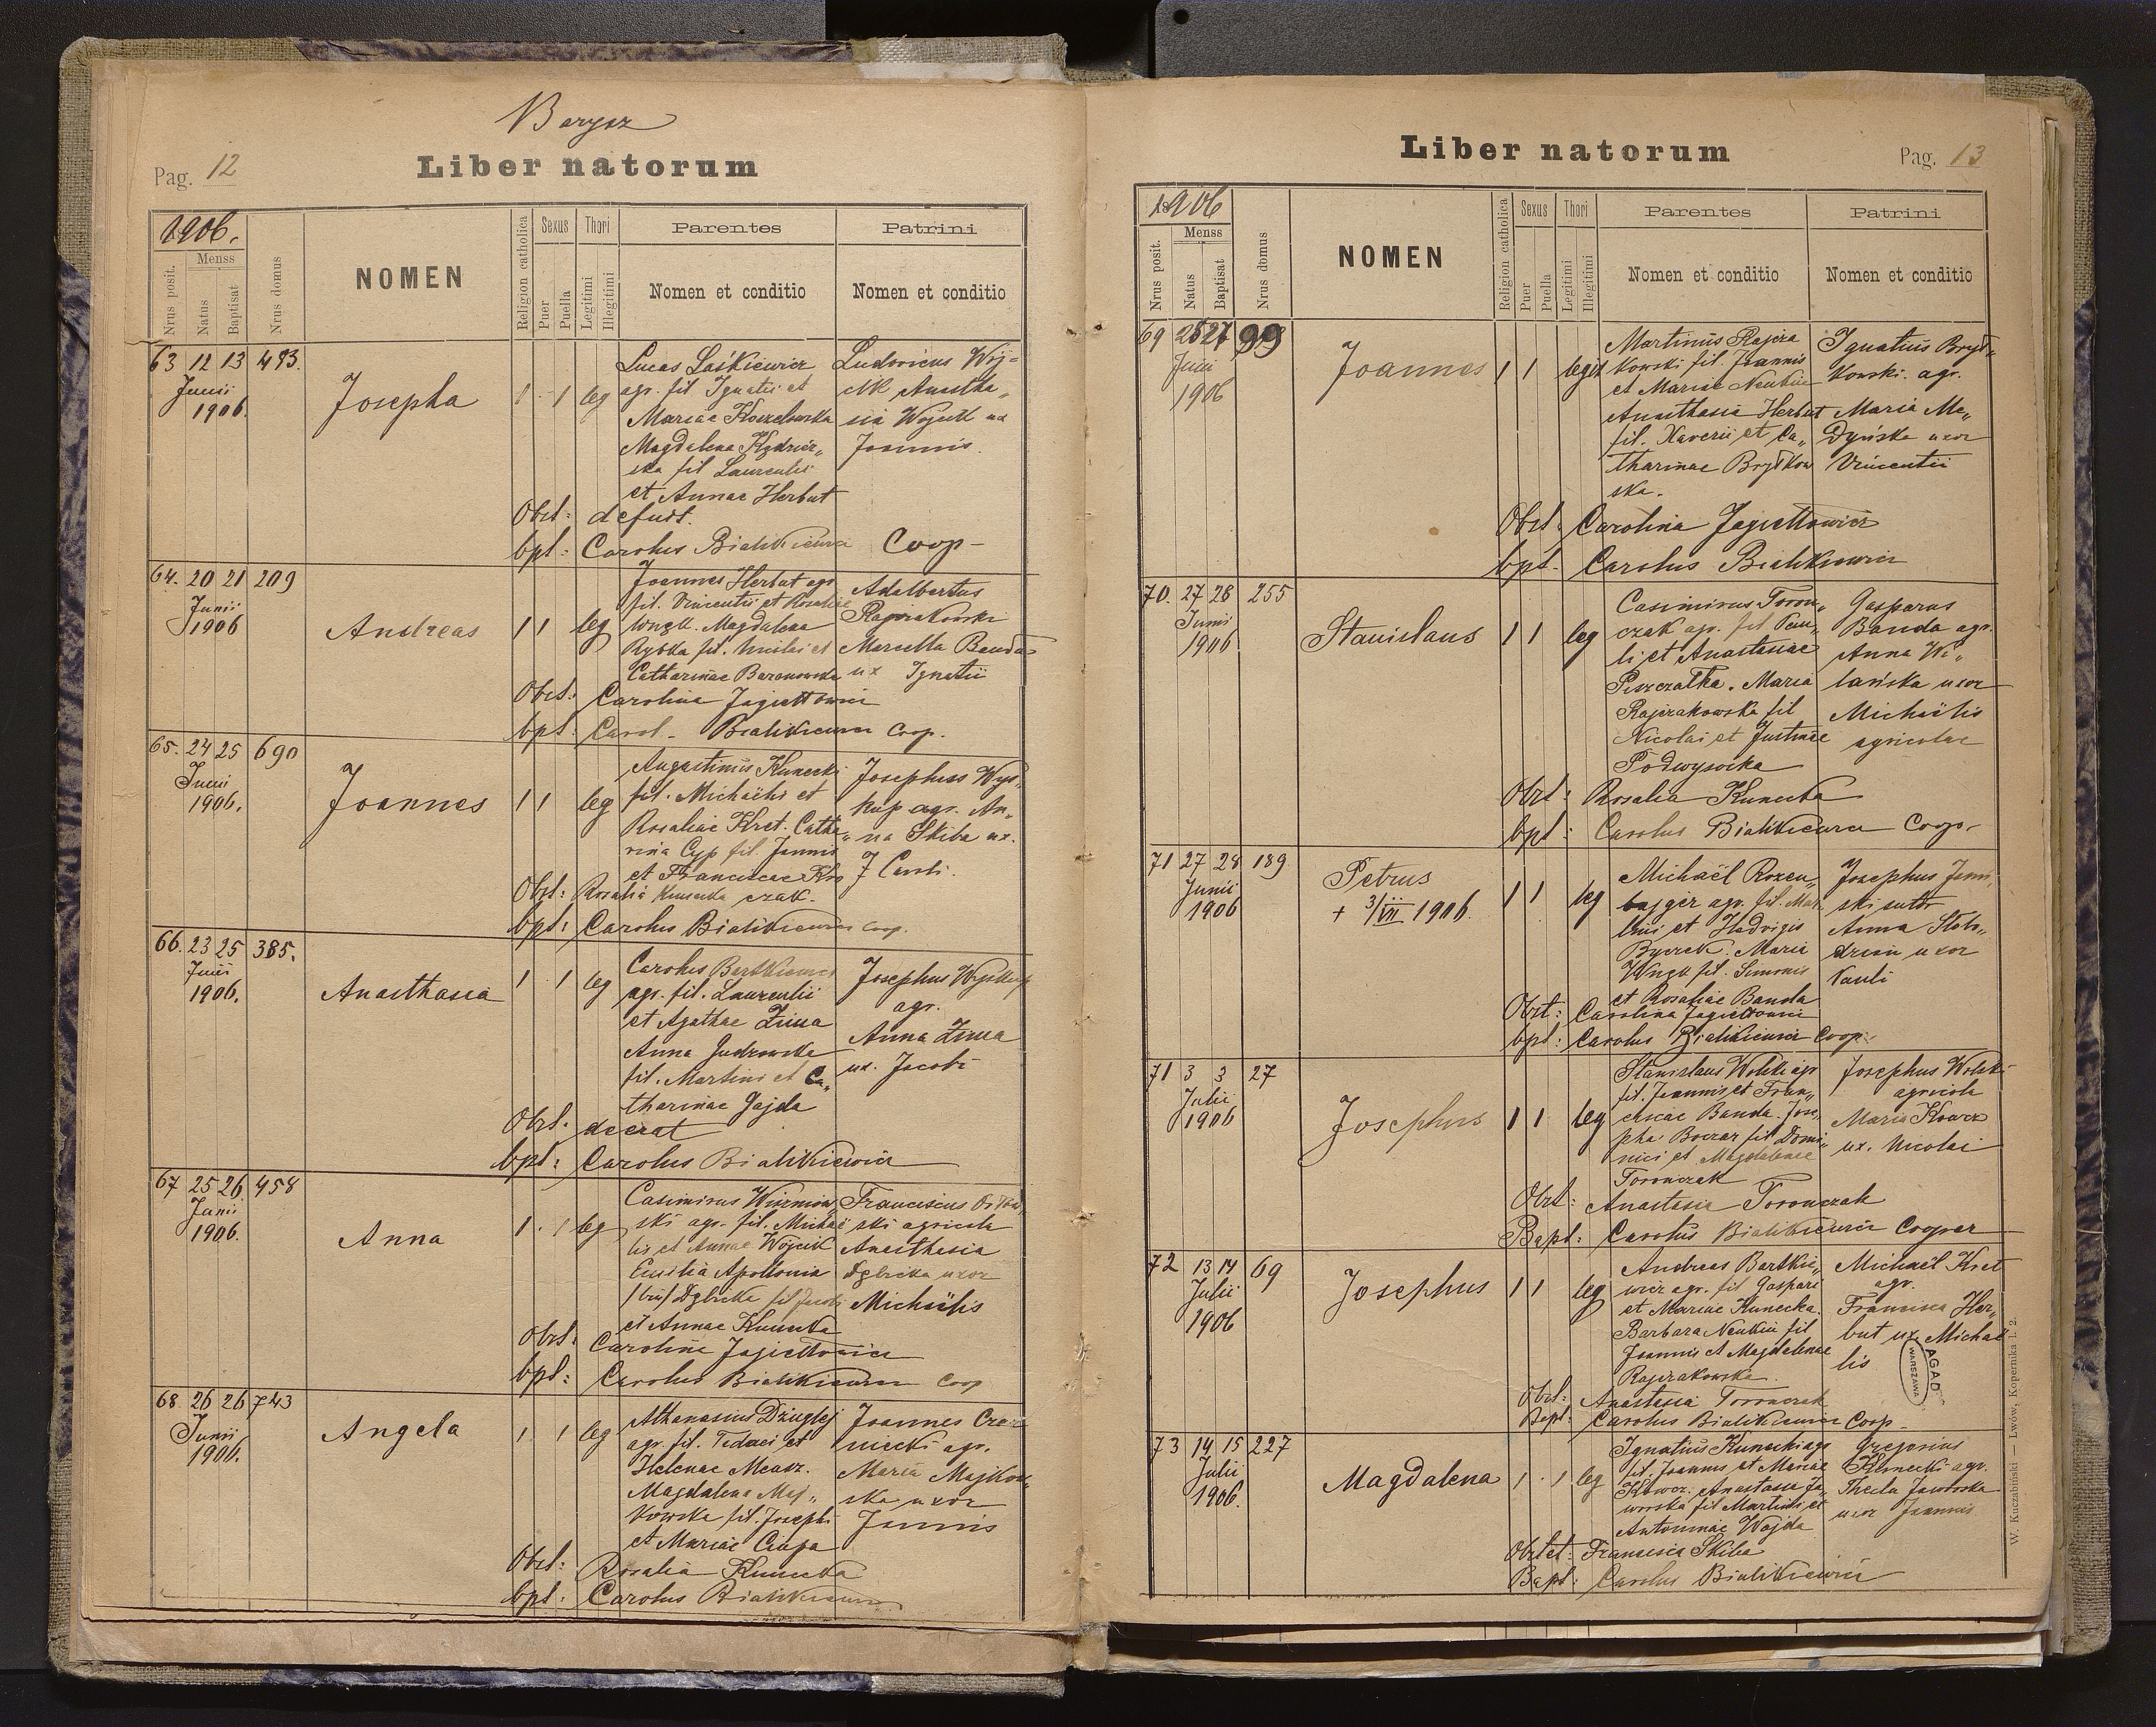 Barysz
Pag. 12
Liber natorum
1906.
Nrus posit.
Menss
Natus
Baptisat
Nrus domus
NOMEN
Religion catholica
Sexus
Puer
Puella
Thori
Legitimi
Illegitimi
Parentes
Nomen et conditio
Patrini
Nomen et conditio
63 12 13 493.
Junii
1906.
Josepha
1 1 leg
Lucas Laśkiewicz
agr. fil Ignatii et
Mariae
Magdalena
ska fil Laurentii
et Annae Herbut
Ludovicus Woj=
cik Anastha„
sia Wojcik ux
Joannis.
Obst: defuit.
bpt: Carolus Bialikiewicz Coop-
64. 20 21 209
Junii
1906
Andreas
1 1 leg
Joannes Herbut agr
fil. Vincentii et Rosaliae
Wngll. Magdalena
Rybka fil. Nicolai et
Catharinae Baranowska
Adalbertus
Rajzrakowski
Marcella Banda
ux Ignatii
Obst: Carolina Jagiełłowicz
bpt: Carol- Bialikiewicz Coop.
65. 24 25 690
Junii
1906.
Joannes
1 1 leg
Augustinus Kunecki
fil. Michaëlis et
Rosaliae Kret. Catha„
rina Cyp fil. Joannis
et Franciscae Kro
czak.
Josephus Wys„
kup agr. An„
na Skiba ux.
Obst: Rosalia Kunecka
bpt: Carolus Bialikiewicz Coop.
66. 23 25 385.
Junii
1906.
Anasthasia
1 1 leg
Carolus Bartkiewicz
agr. fil. Laurentii
et Agathae Zima
Anna Gudzowska
fil. Martini et Ca„
tharinae Gajda
Josephus Wyskup
agr.
Anna Zima
ux. Jacobi
Obst. deerat
bpt: Carolus Bialikiewicz
67 25 26 458
Junii
1906.
Anna
1 1 leg
Casimirus
ski agr. fil. Michaë
lis et Annae Wojcik
Emilia Apollonia
/bin/ Dębicka fil Jacobi
et Annae Kunecka
Franciscus
ski agricola
Anasthasia
Dębicka uxor
Michaëlis
Obst: Carolina Jagiełłowicz
bpt: Carolus Bialikiewicz Coop
68. 26 26 743
Junii
1906.
Angela
1 1 leg
Athanasius
agr. fil. Tedaei et
Helenae
Magdalena Maj„
kowska fil. Josephi
et Mariae Ciupa
Joannes
niecki agr.
Maria Majkow„
ska uxor
Joannis
Obst: Rosalia Kunecka
bpt: Carolus Bialikiewicz
Liber natorum
Pag. 13
1906
Nrus posit.
Menss
Natus
Baptisat
Nrus domus
NOMEN
Religion catholica
Sexus
Puer
Puella
Thori
Legitimi
Illegitimi
Parentes
Nomen et conditio
Patrini
Nomen et conditio
69 26 27 99
Junii
1906
Joannes
1 1 legit
Martinus Rajzra
kowski fil. Joannis
et Mariae Neukin
Anasthasia Herbut
fil. Xaverii et Ca„
tharinae Brytkow
ska.
Ignatius Bryt„
kowski. agr.
Maria Me„
dyńska uxor
Vincentii
Obst. Carolina Jagiełłowicz
bpt. Carolus Bialikiewicz
70. 27 28 255
Junii
1906
Stanislaus
1 1 leg
Casimirus Toron„
czak agr. fil Pau„
li et Anastasiae
Pszczatka. Maria
Rajzrakowska fil
Nicolai et Justinae
Podwysocka
Gasparus
Banda agr.
Anna Wi„
lańska uxor
Michaëlis
agricolae
Obst: Rosalia Kunecka
bpt: Carolus Bialikiewicz Coop-
71 27 28 189
Junii
1906
Petrus
+ 3/VII 1906.
1 1 leg
Michaël Rozen„
bajger agr. fil. Mar
et Hadvigis
Byczek. Maria
Wngll fil. Simonis
et Rosaliae Banda
Josephus
ski sutor
Anna Sto„
uxor
Pauli
Obst: Carolina Jagiełłowicz
bpt: Carolus Bialikiewicz Coop.
71 3 3 27
Julii
1906
Josephus
1 1 leg
Stanislaus Wolski agr
fil. Joannis et Fran„
ciscae Banda. Jose„
pha Boczar fil Domi„
nici et Magdalenae
Toronczak
Josephus Wolski
agricola
Maria Kowcz
ux. Nicolai
Obst: Anastasia Toronczak
Bapt: Carolus Bialikiewicz Cooper
72 13 14 69
Julii
1906
Josephus
1 1 leg
Andreas Bartkie„
wicz agr. fil Gaspari
et Mariae Kunecka.
Barbara Neukin fil
Joannis et Magdalenae
Rajzrakowska.
Michaël Kret
agr.
Francisca Her„
but ux. Michaë
lis
Obst: Anastasia Toronczak
Bapt: Carolus Bialikiewicz Coop-
73 14 15 227
Julii
1906.
Magdalena
1 1 leg
Ignatius Kunecki agr
fil. Joannis et Mariae
Kowcz. Anastasia Ja„
worska fil Martini et
Antoninae Wojda
Gregorius
Kunecki agr.
Thecla Jaworska
uxor Joannis
Obstet: Francisca Skiba
Bapt: Carolus Bialikiewicz
AGAD
WARSZAWA
W. Kuczabiński — Lwów, Kopernika l. 2.